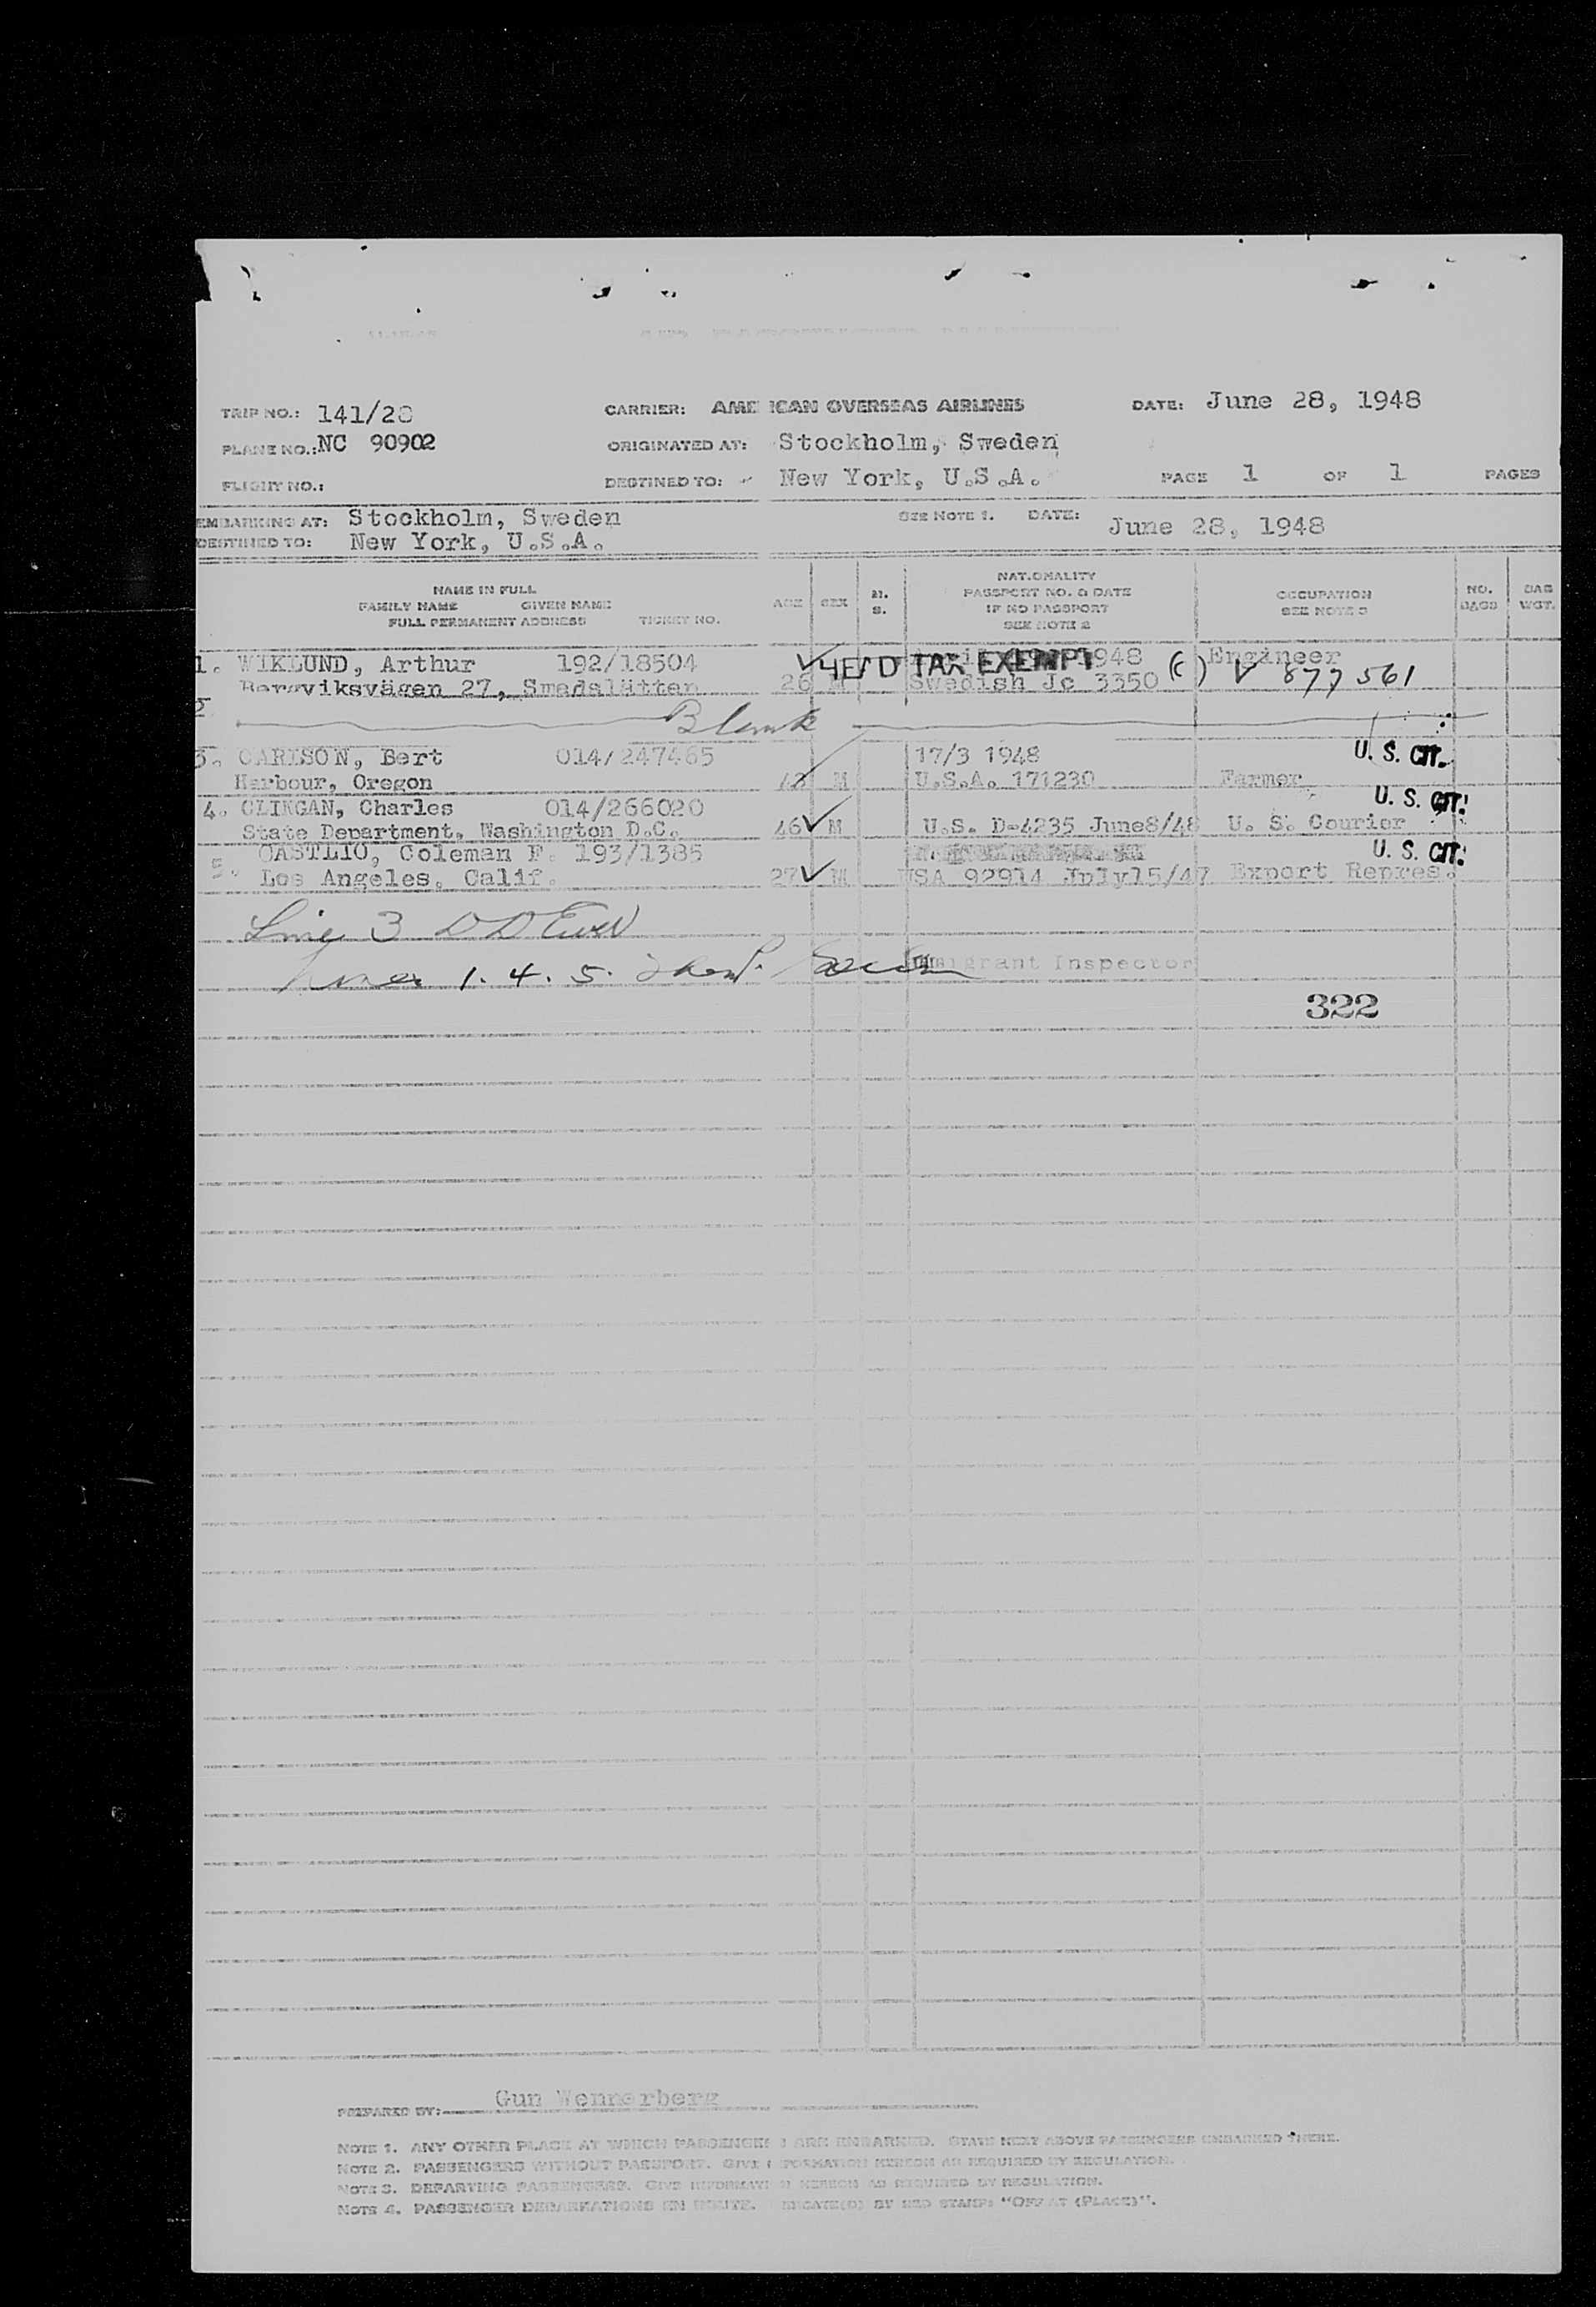 TRIP NO.: 141/28 CARRIER: AMERICAN OVERSEAS AIRLINES DATE: June 28, 1948
PLANE NO.: NC 90902 ORIGINATED AT: Stockholm, Sweden
FLIGHT NO.: DESTINED TO: New York, U.S.A. PAGE 1 OF 1 PAGES
EMBARKING AT: Stockholm, Sweden SEE NOTE 1. DATE: June 28, 1948
DESTINED TO: New York, U.S.A.
NAME IN FULL
FAMILY NAME GIVEN NAME
FULL PERMANENT ADDRESS TICKET NO.
AGE SEX M. S.
NATIONALITY
PASSPORT NO. & DATE
IF NO PASSPORT
SEE NOTE 2
OCCUPATION
SEE NOTE 3
NO. BAGS
BAG WGT.
1. WIKLUND, Arthur 192/18504 HEAD TAX EXEMPT 1948 (C) Engineer
Bergviksvägen 27, Smedslätten 26 M Swedish Jc 3350 V 877561
2 Blank
3. CARLSON, Bert 014/247465 17/3 1948 U. S. CIT.
Harbour, Oregon M U.S.A. 171230 Farmer
4. CLINGAN, Charles 014/266020 U. S. CIT.
State Department, Washington D.C. 46 M U.S. D-4235 June8/48 U. S. Courier
5. CASTLIO, Coleman F. 193/1385 U. S. CIT.
Los Angeles, Calif. 27 M USA 92914 July15/47 Export Repres.
Line 3
Lines 1. 4. 5. Immigrant Inspector
322
PREPARED BY: Gun Wennerberg
NOTE 1. ANY OTHER PLACE AT WHICH PASSENGERS ARE EMBARKED. STATE NEXT ABOVE PASSENGERS EMBARKED THERE.
NOTE 2. PASSENGERS WITHOUT PASSPORT. GIVE INFORMATION HEREON AS REQUIRED BY REGULATION.
NOTE 3. DEPARTING PASSENGERS. GIVE INFORMATION HEREON AS REQUIRED BY REGULATION.
NOTE 4. PASSENGER DEBARKATIONS EN ROUTE. INDICATE(D) BY RED STAMP: "OFF AT (PLACE)".